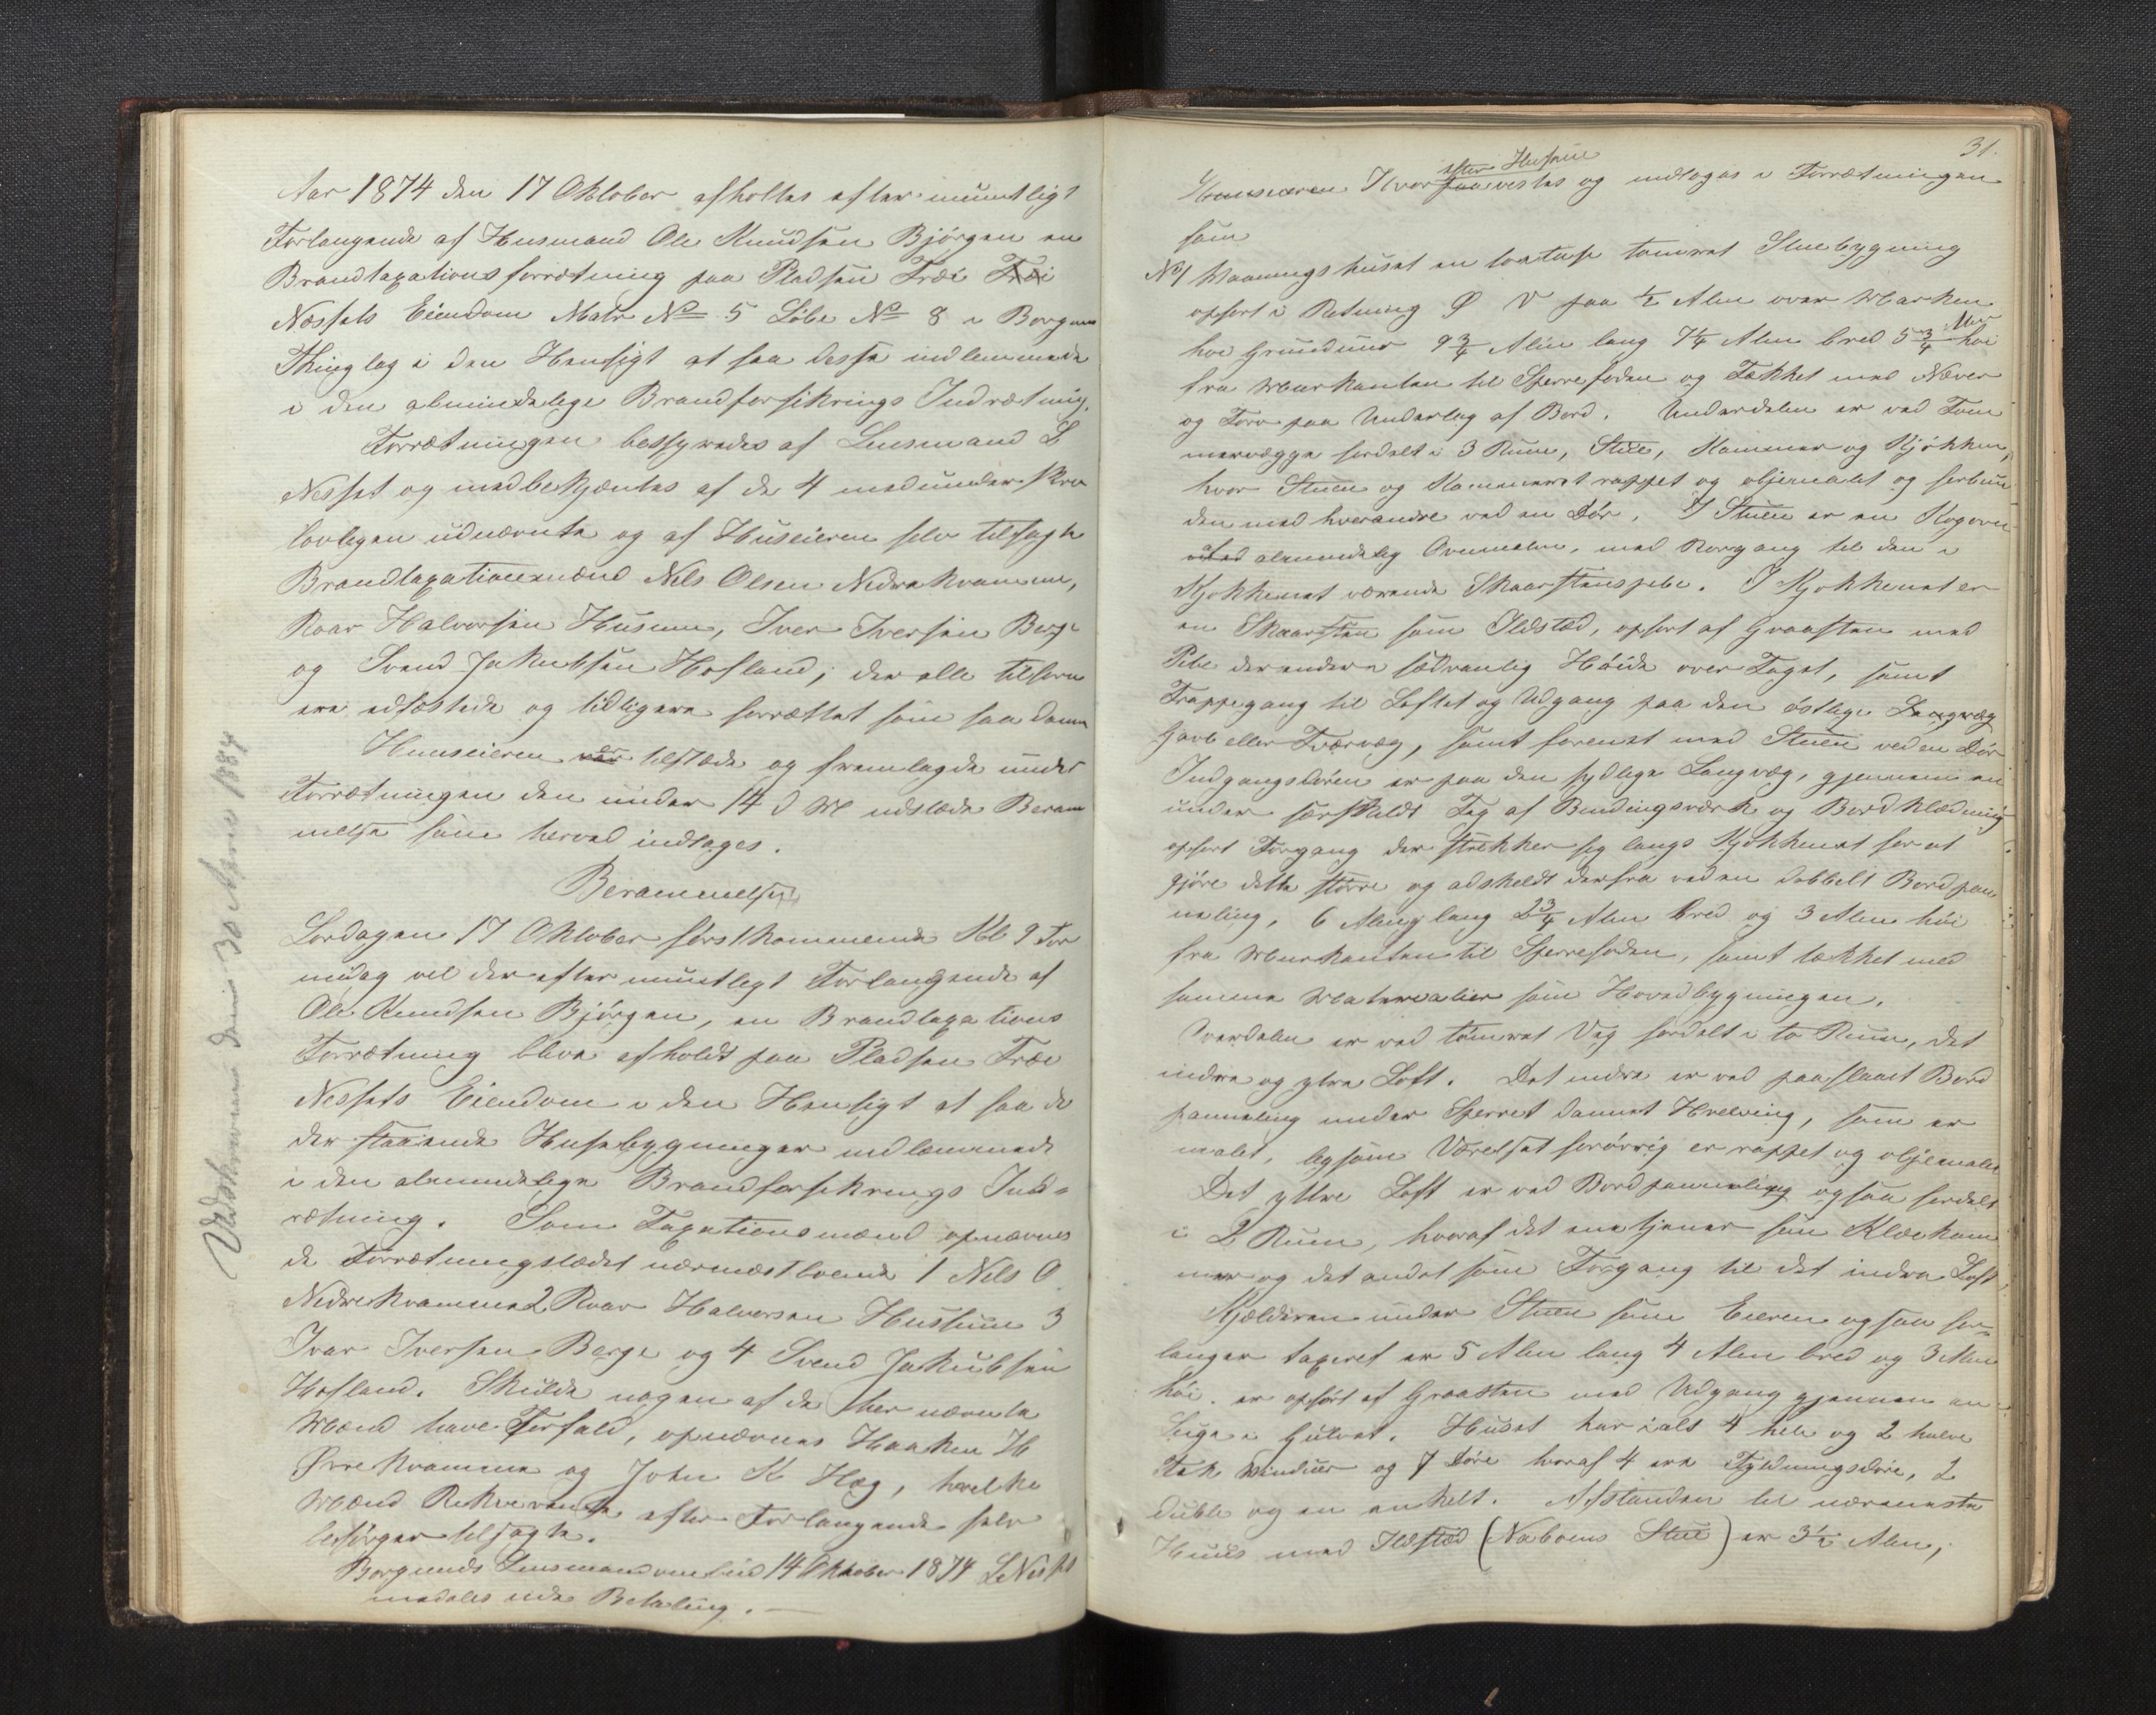 Aar 1874 den 17 Oktober afholtes efter mumtligt
Forlangende af Husmand Ole Knudsen Bjørgen en
Brandtaxationsforrætning paa Pladsen Træe Træi
Nessets Eiendom Matr No 5 Løbe No 8 i Borgunds
Thinglag i den Hensigt at faa desse indlemmede
i den almindelige Brandforsikrings Indrætnig,
Forrætningen bestyredes af Lensmand L
Nesset og medbekjentes af de 4 medunderskrev
lovlegen udnævnte og af Huseieren selv tilsagte
Brandtaxationsmænd Nils Olsen Nedrekvamme,
Roar Halvorsen Husum, Iver Iversen Berge
og Svend Jakubsen Hofland; der alle tilforn
ere edfæstede og tidligere forrættet som saadanne
Huuseieren var tilstæde og fremlagde under
Forrætningen den under 14 d M udstæde Beram
melse som herved indtages.
Berammelse
Lørdagen 17 Oktober førstkommende Kl 9 For
midag vil der efter muntlegt Forlangende af
Ole Knudsen Bjørgen, en Brandtaxations
Forrætning blive afholdt paa Pladsen Træe
Nessets Eiendom i den Hensigt at faa de
der staaende Husebygninger indlæmmede
i den almindelige Brandforsikrings Ind-
rætning. Som Taxationsmænd opnævnes
de Forrætningstædet nærmæstboende 1 Nils O
Nedrekvamme 2 Roar Halvorsen Hussum 3
Ivar Iversen Berge og 4 Svend Jakubsen
Hofland. Skulde nogen af de her nævnte
Mænd have Forfald, opnævnes Haaken H
Øvrekvamme og John K Hæg, hvelke
Mænd Rekverente efter Forlangende selv
besørger tilsagte.
Borgunds Lensmandsombud 14 Oktober 1874 L Nesset
medeles uden Betaling. —
Udskreven den 30 April 1884
31.
efter Husene
Huuseieren Hvor paavestes og indtoges i Forrætningen
som
No 1 Vaaningshuset en toetasjes tomret Stuebygning
opført i Retning Ø V paa ½ Alen over Marken
høi Grundmur 9¾ Alen lang 7¼ Alen bred 5¾ Alen høi
fra Murkanten til Sperrefoden og Tækket med Næver
og Torv paa Underlag af Bord. Underdelen er ved Tøm
mervægge fordelt i 3 Rum, Stue, Kammer og Kjøkken,
hvor Stuen og Kammeret rappet og oljemalet og forbun
den med hverandre ved en Dør. I Stuen er en Kogovn
ved almindelig Ovnmalm, med Rørgang til den i
Kjøkkenet værende Skaarstenspibe. I Kjøkkenet er
en Skaarsten som Ildsted, opført af Graasten med
Pibe derunder a sædvanlig Høide over Taget, samt
Trappegang til Loftet og Udgang paa den østlige Langvæg
Gavl eller Tværvæg, samt forenet med Stuen ved en Dør
Indgangsdøren er paa den sydlige Langvæg, gjennem en
under særskeldt Tag af Bindingsværk og Bordklædning
opført Forgang der strækker sig langs Kjøkkenet for at
gjøre dette større og adskeldt derfra ved en dobbelt Bordpan
neling, 6 Alen lang 2¾ Alen bred og 3 Alen høi
fra Murkanten til Sperrefoden, samt tækket med
samme Materealier som Hovedbygningen.
Overdelen er ved tømret Væg fordelt i to Rum, det
indre og ytre Loft. Det indre er ved paaslaaet Bord
panneling under Sperret dannet Hvelving, som er
malet, legsom Værelset forøvrig er rappet og oljemalet
Det yttre Loft er ved Bordpanneling ogsaa fordelt
i 2 Rum, hvoraf det ene tjener som Klækam
mer og det andet som Forgang til det indre Loft,
Kjælderen under Stuen som Eieren ogsaa for-
langer taxeret er 5 Alen lang 4 Alen bred og 3 Alen
høi. er opført af Graasten med Udgang gjennem en
Luge i Gulvet. Huset har ialt 4 hele og 2 halve
Fak Vinduer og 7 Døre hvoraf 4 ere Fyldningsdøre, 2
duble og en enkelt. Afstanden til nærmeste
Huus med Ildsted (Naboens Stue) er 3½ Alen,